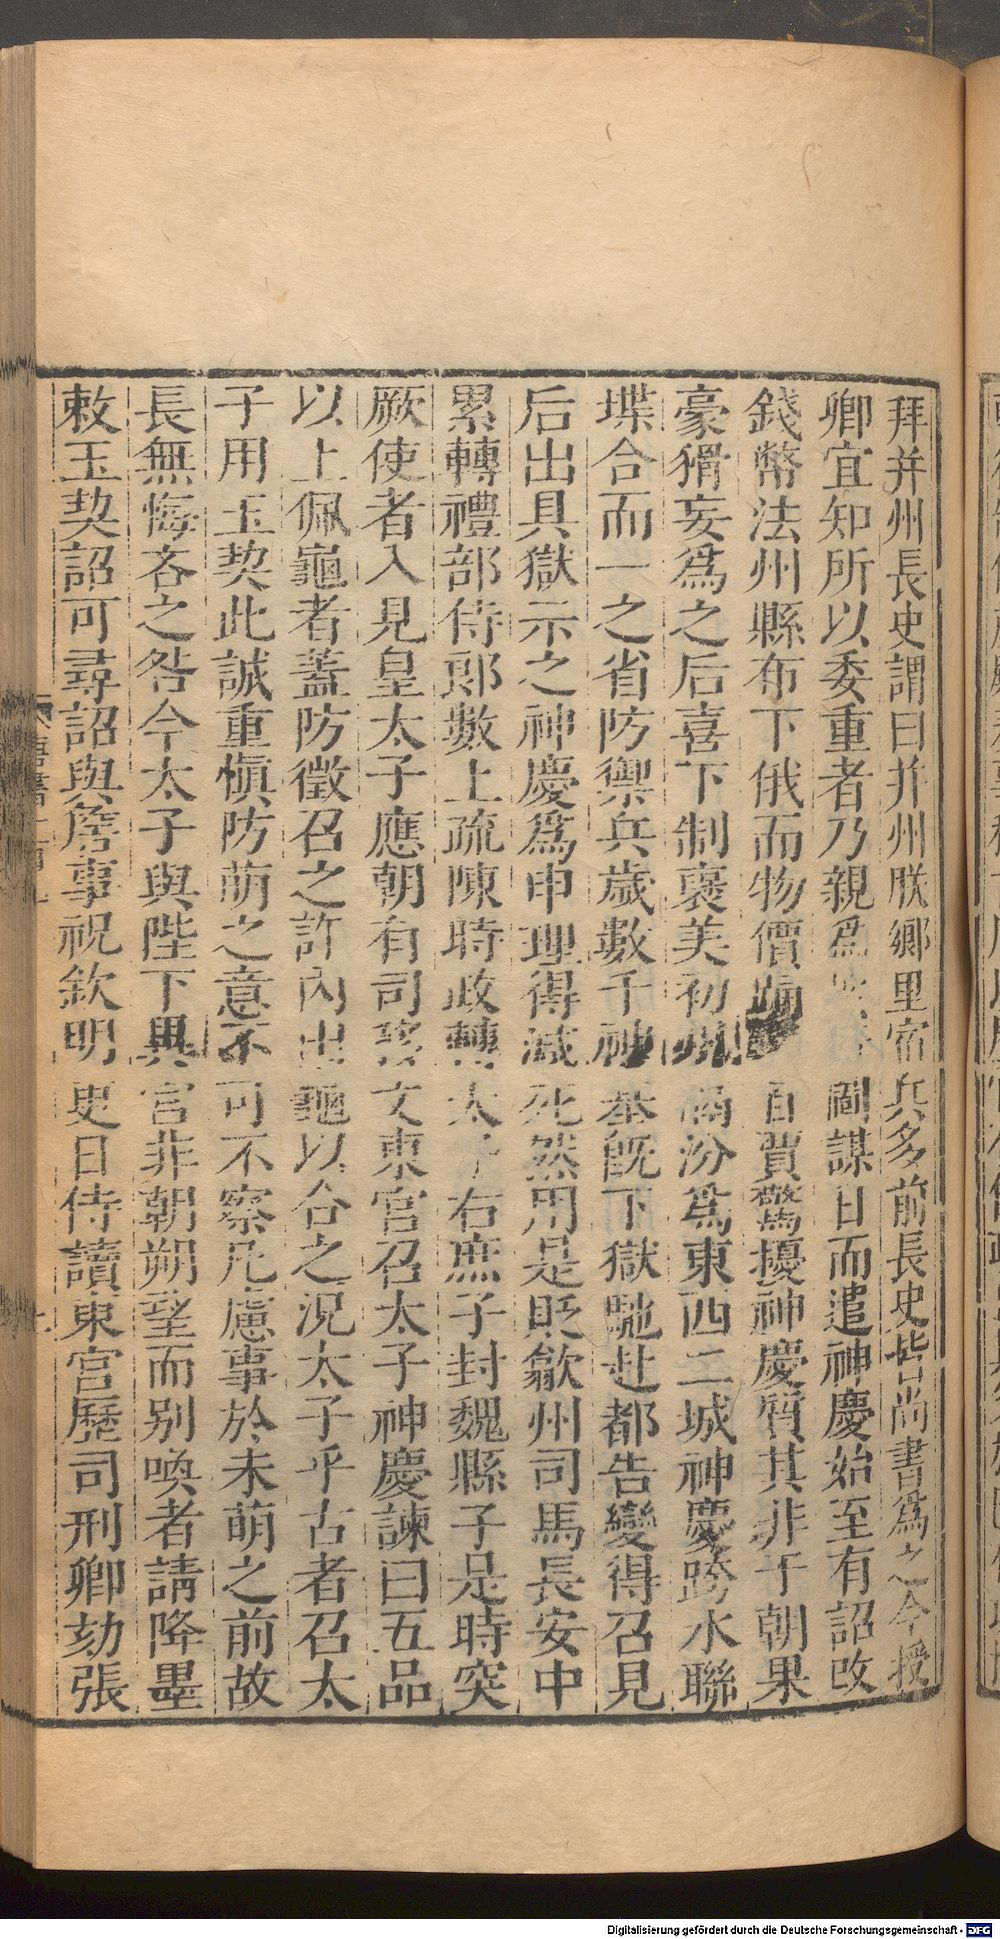 拜并州長史謂曰并州朕鄉里宿兵多前長史皆尚書爲之今授
卿宜知所以委重者乃親爲 圖謀日而遣神慶始至有詔改
錢幣法州縣布下俄而物價踊 百賈驚擾神慶質其非于朝果
豪猾妄爲之后喜下制褒美初州 汾爲東西二城神慶跨水聯
堞合而一之省防禦兵歲數千神 基既下獄馳赴都告變得召見
后出具獄示之神慶爲申理得減死然用是貶歙州司馬長安中
累轉禮部侍郎數上疏陳時政轉太子右庶子封魏縣子是時突
厥使者入見皇太子應朝有司移文東宮召太子神慶諫曰五品
以上佩龜者蓋防徵召之詐內出龜以合之況太子乎古者召太
子用玉契此誠重愼防萌之意不可不察凡慮事於未萌之前故
長無悔吝之咎今太子與陛下異宮非朝朔望而別喚者請降墨
敕玉契詔可尋詔與詹事祝欽明 日侍讀東宮歷司刑卿劾張
Digitalisierung gefördert durch die Deutsche Forschungsgemeinschaft - DFG